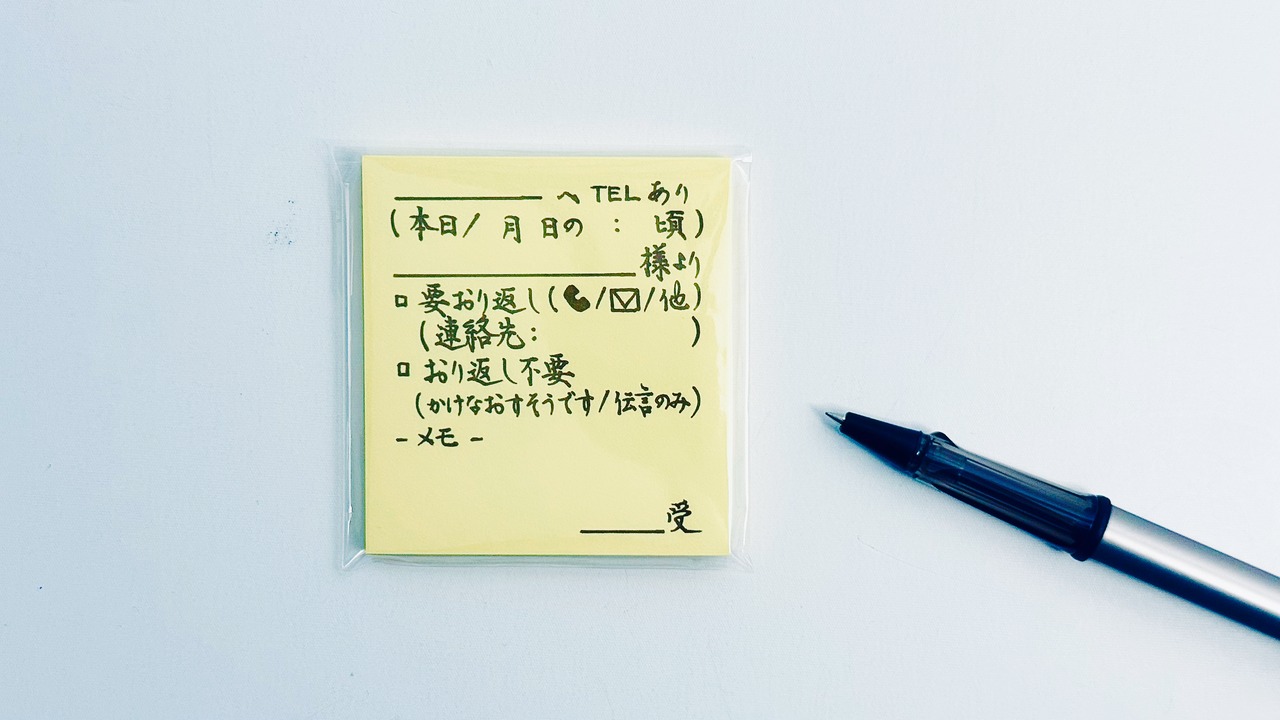 ______へTELあり
(本日/ 月 日の : 頃)
__________様より
□ 要おり返し(📞/✉/他)
(連絡先: )
□ おり返し不要
(かけなおすそうです/伝言のみ)
- メモ -
____受